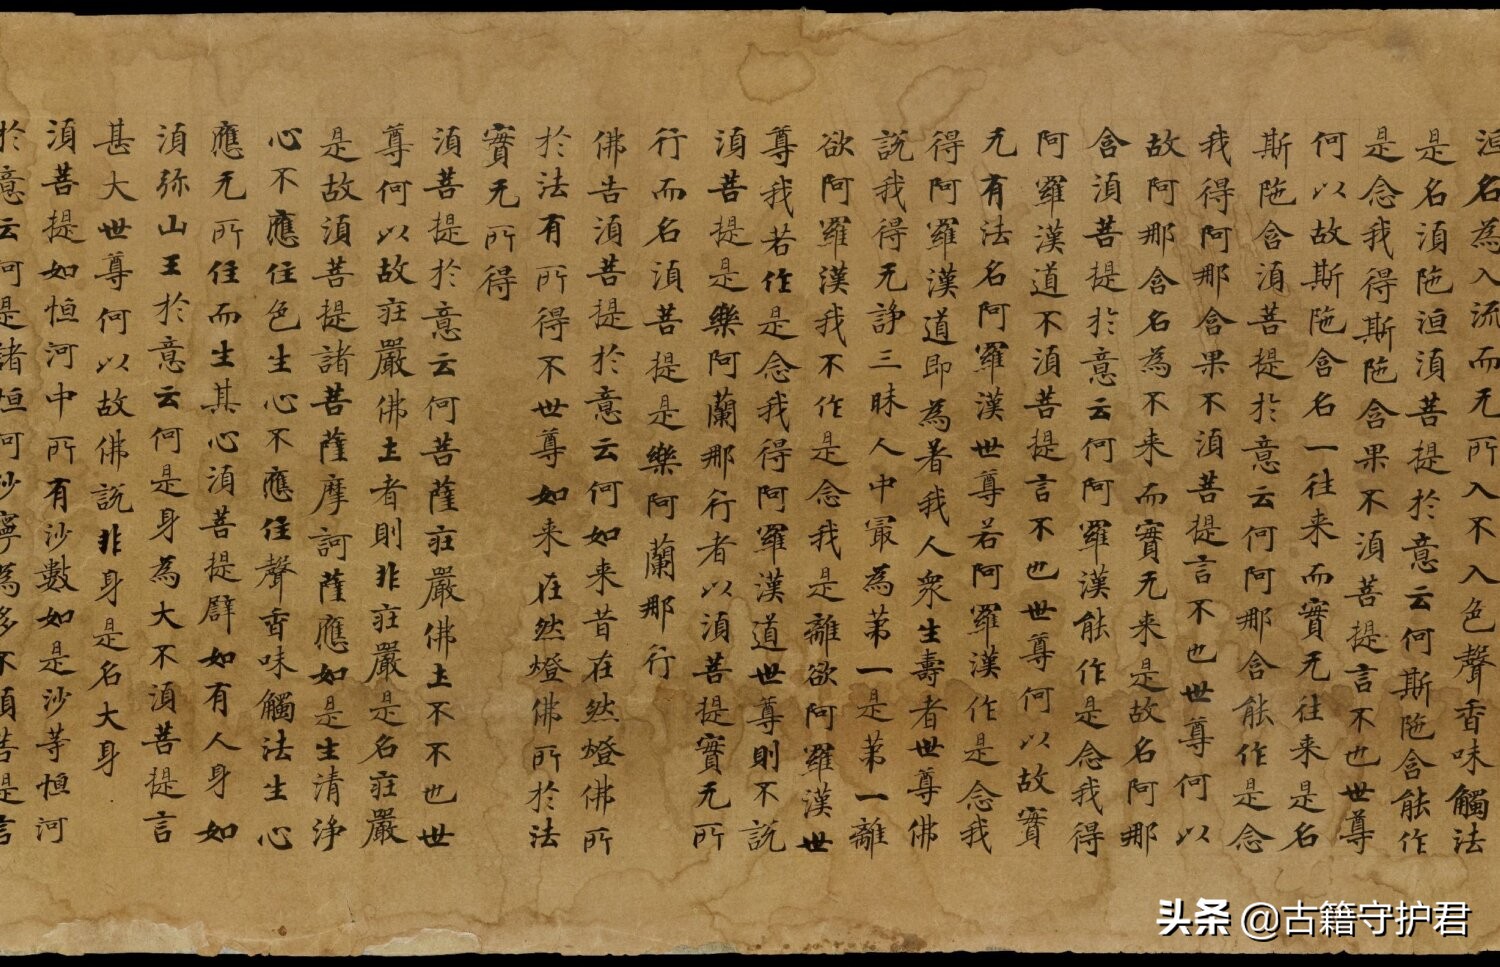 洹名為入流而无所入不入色聲香味觸法
是名湏陁洹湏菩提於意云何斯陁含能作
是念我得斯陁含果不湏菩提言不也世尊
何以故斯陁含名一往来而實无往来是名
斯陁含湏菩提於意云何阿那含能作是念
我得阿那含果不湏菩提言不也世尊何以
故阿那含名為不来而實无来是故名阿那
含湏菩提於意云何阿羅漢能作是念我得
阿羅漢道不湏菩提言不也世尊何以故實
无有法名阿羅漢世尊若阿羅漢作是念我
得阿羅漢道即為著我人衆生壽者世尊佛
說我得无諍三昧人中冣為苐一是苐一離
欲阿羅漢我不作是念我是離欲阿羅漢世
尊我若作是念我得阿羅漢道世尊則不說
湏菩提是樂阿蘭那行者以湏菩提實无所
行而名湏菩提是樂阿蘭那行
佛告湏菩提於意云何如来昔在然燈佛所
於法有所得不世尊如来在然燈佛所於法
實无所得
湏菩提於意云何菩薩莊嚴佛土不不也世
尊何以故莊嚴佛土者則非莊嚴是名莊嚴
是故湏菩提諸菩薩摩訶薩應如是生清淨
心不應住色生心不應住聲香味觸法生心
應无所住而生其心湏菩提譬如有人身如
湏弥山王於意云何是身為大不湏菩提言
甚大世尊何以故佛說非身是名大身
湏菩提如恒河中所有沙數如是沙等恒河
於意云何是諸恒河沙寧為多不湏菩提言
头条 @古籍守护君